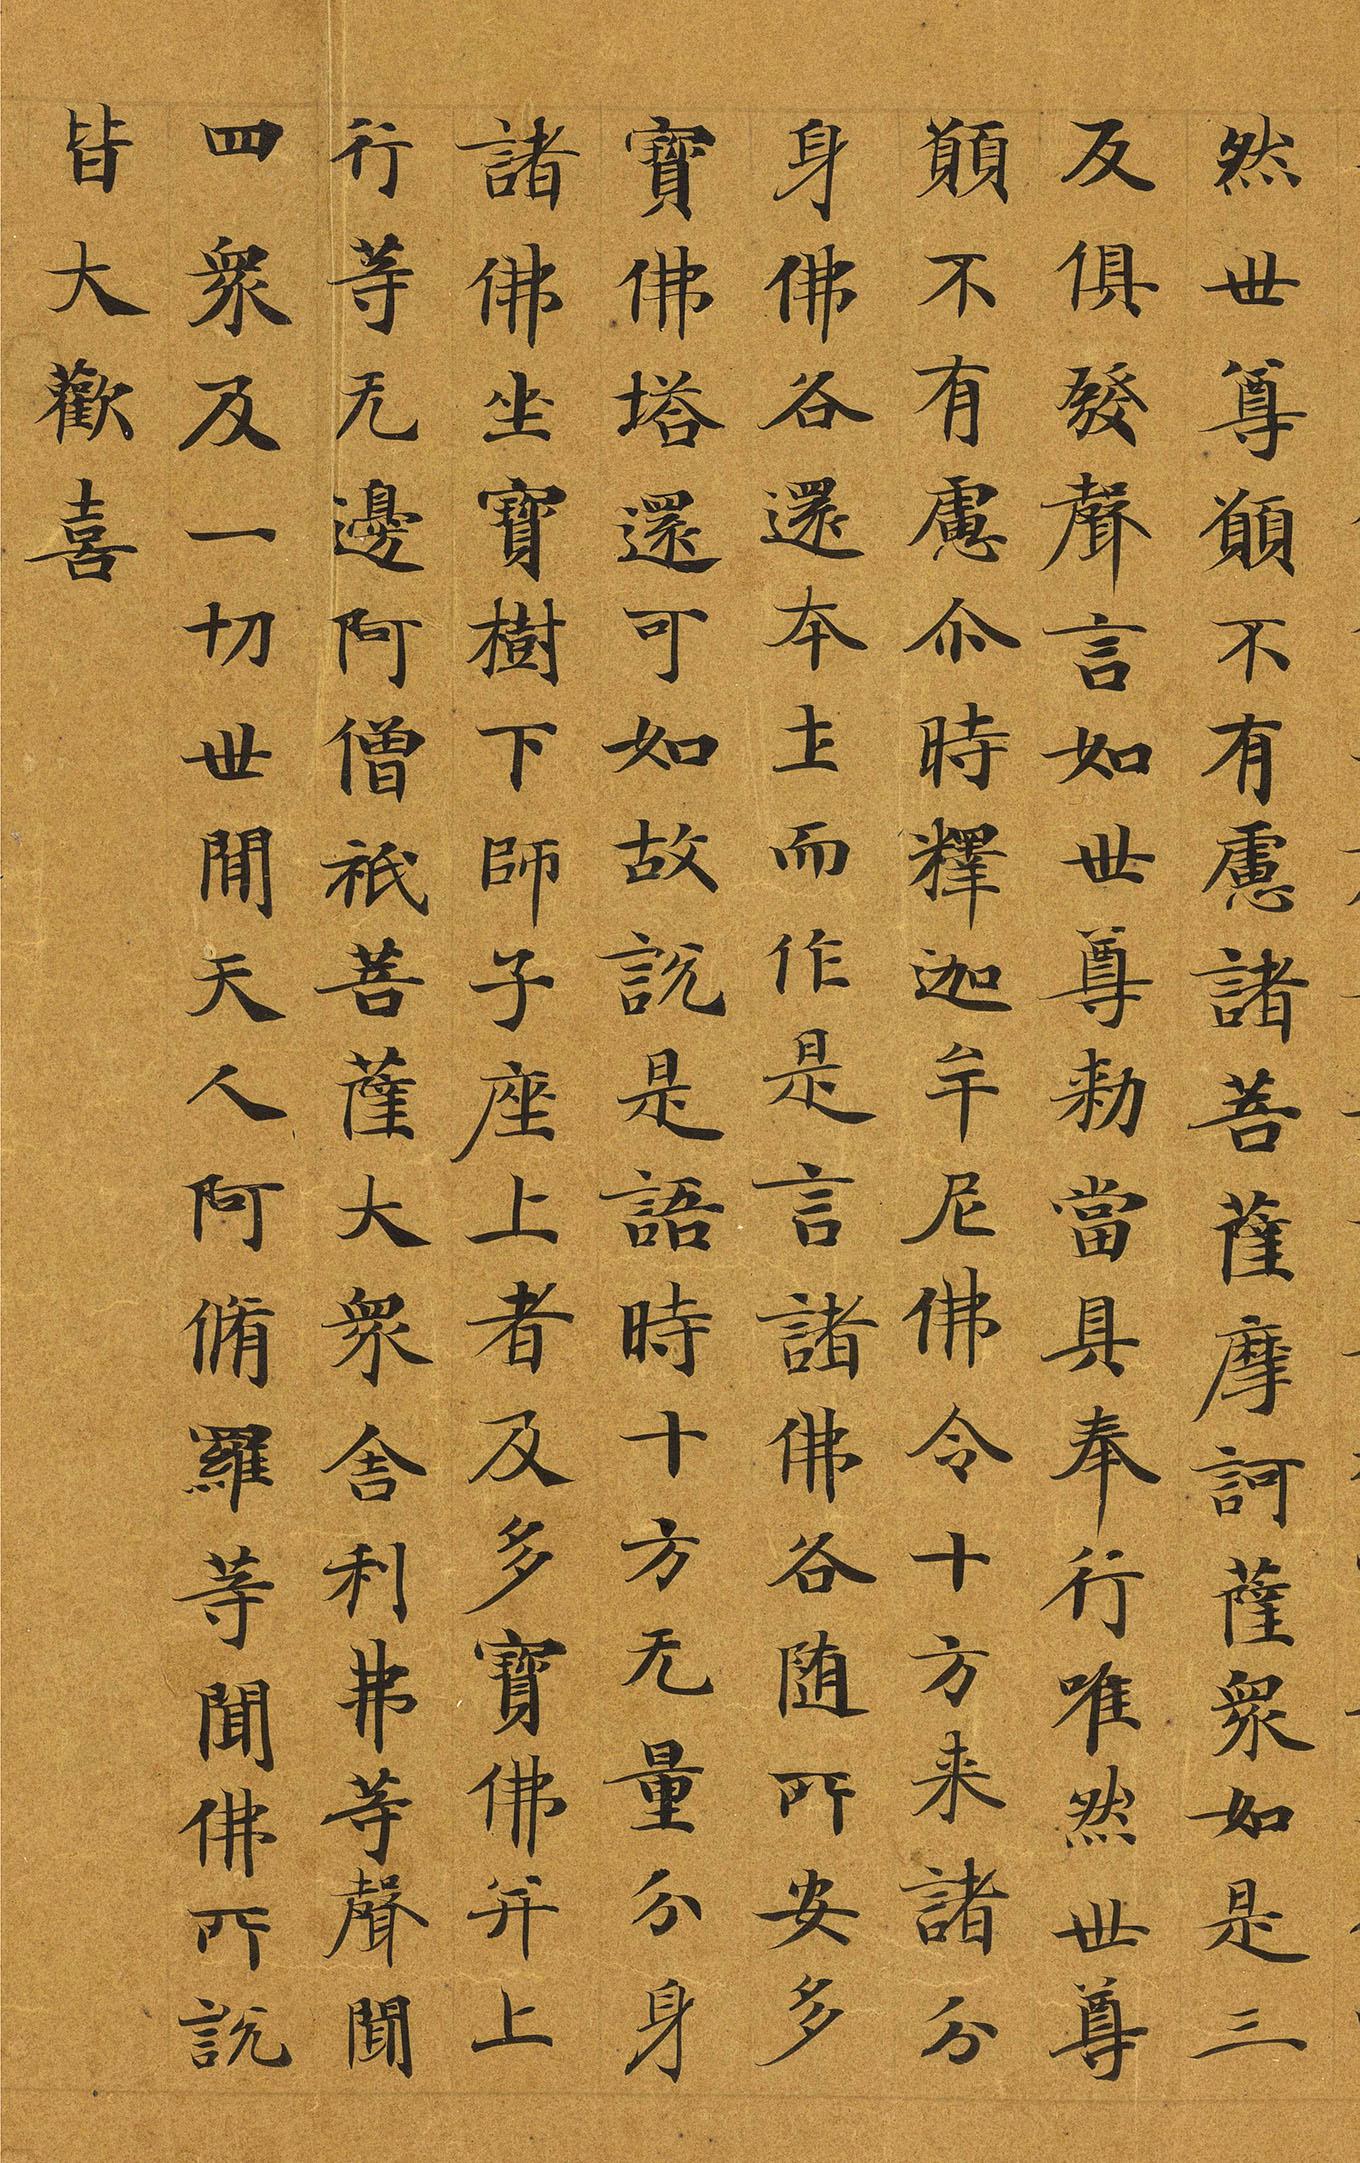 然世尊願不有慮諸菩薩摩訶薩衆如是三
反俱發聲言如世尊勑當具奉行唯然世尊
願不有慮尒時釋迦牟尼佛令十方来諸分
身佛各還本土而作是言諸佛各随所安多
寶佛塔還可如故說是語時十方无量分身
諸佛坐寶樹下師子座上者及多寶佛并上
行等无邊阿僧祇菩薩大衆舎利弗等聲聞
四衆及一切世間天人阿脩羅等聞佛所說
皆大歡喜